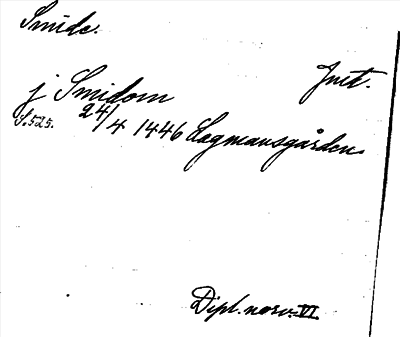 Smide.
j Smidom Inst.
S. 525. 24/4 1446 Lagmansgården
Dipl. norv. VI.